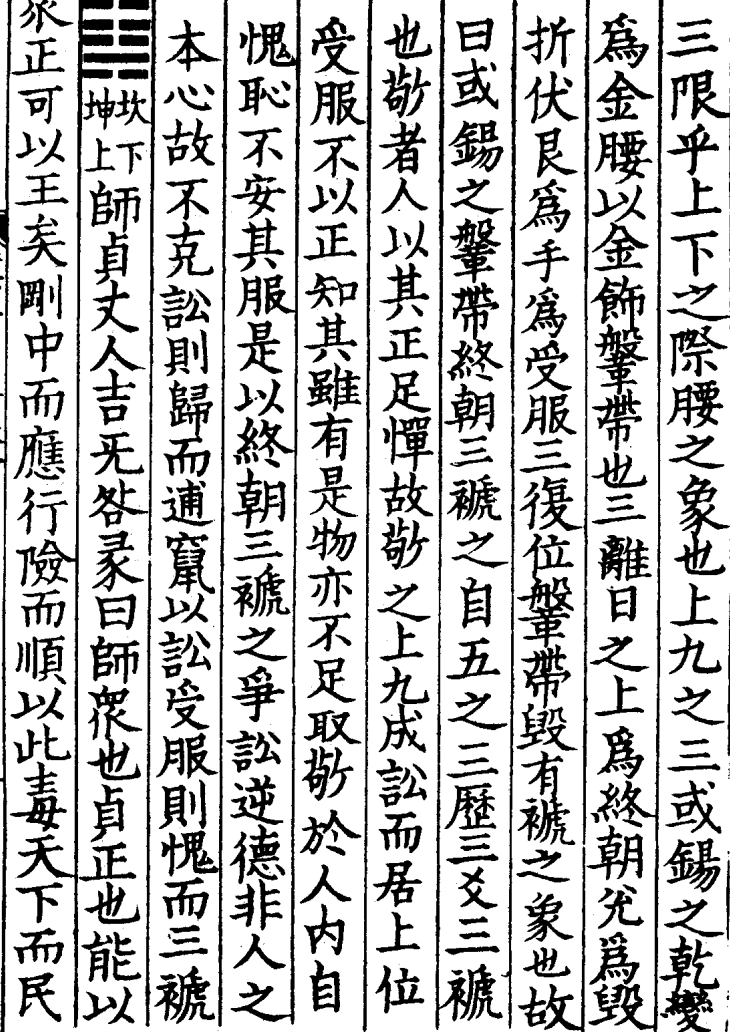 三限乎上下之際腰之象也上九之三或錫之乾變
爲金腰以金飾鞶帶也三離日之上爲終朝兊爲毀
折伏艮爲手爲受服三復位鞶帶毀有褫之象也故
曰或錫之鞶帶終朝三褫之自五之三歷三爻三褫
也敬者人以其正足憚故敬之上九成訟而居上位
受服不以正知其雖有是物亦不足取敬於人内自
愧恥不安其服是以終朝三褫之爭訟逆德非人之
本心故不克訟則歸而逋竄以訟受服則愧而三褫
坎下坤上師貞丈人吉旡咎彖曰師衆也貞正也能以
衆正可以王矣剛中而應行險而順以此毒天下而民